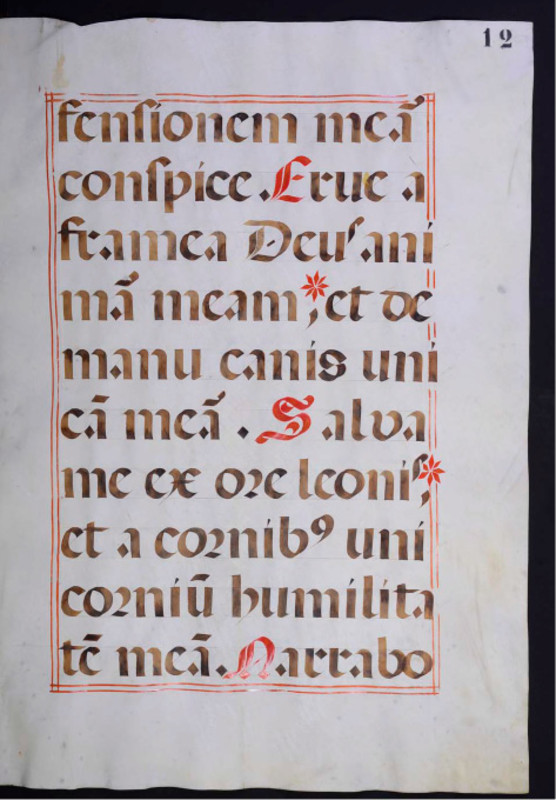 12
fensionem meā
conspice. Erue a
framea Deus ani
mā meam; et de
manu canis uni
cā meā. Salva
me ex ore leonis;
et a cornibꝰ uni
corniū humilita
tē meā. Narrabo